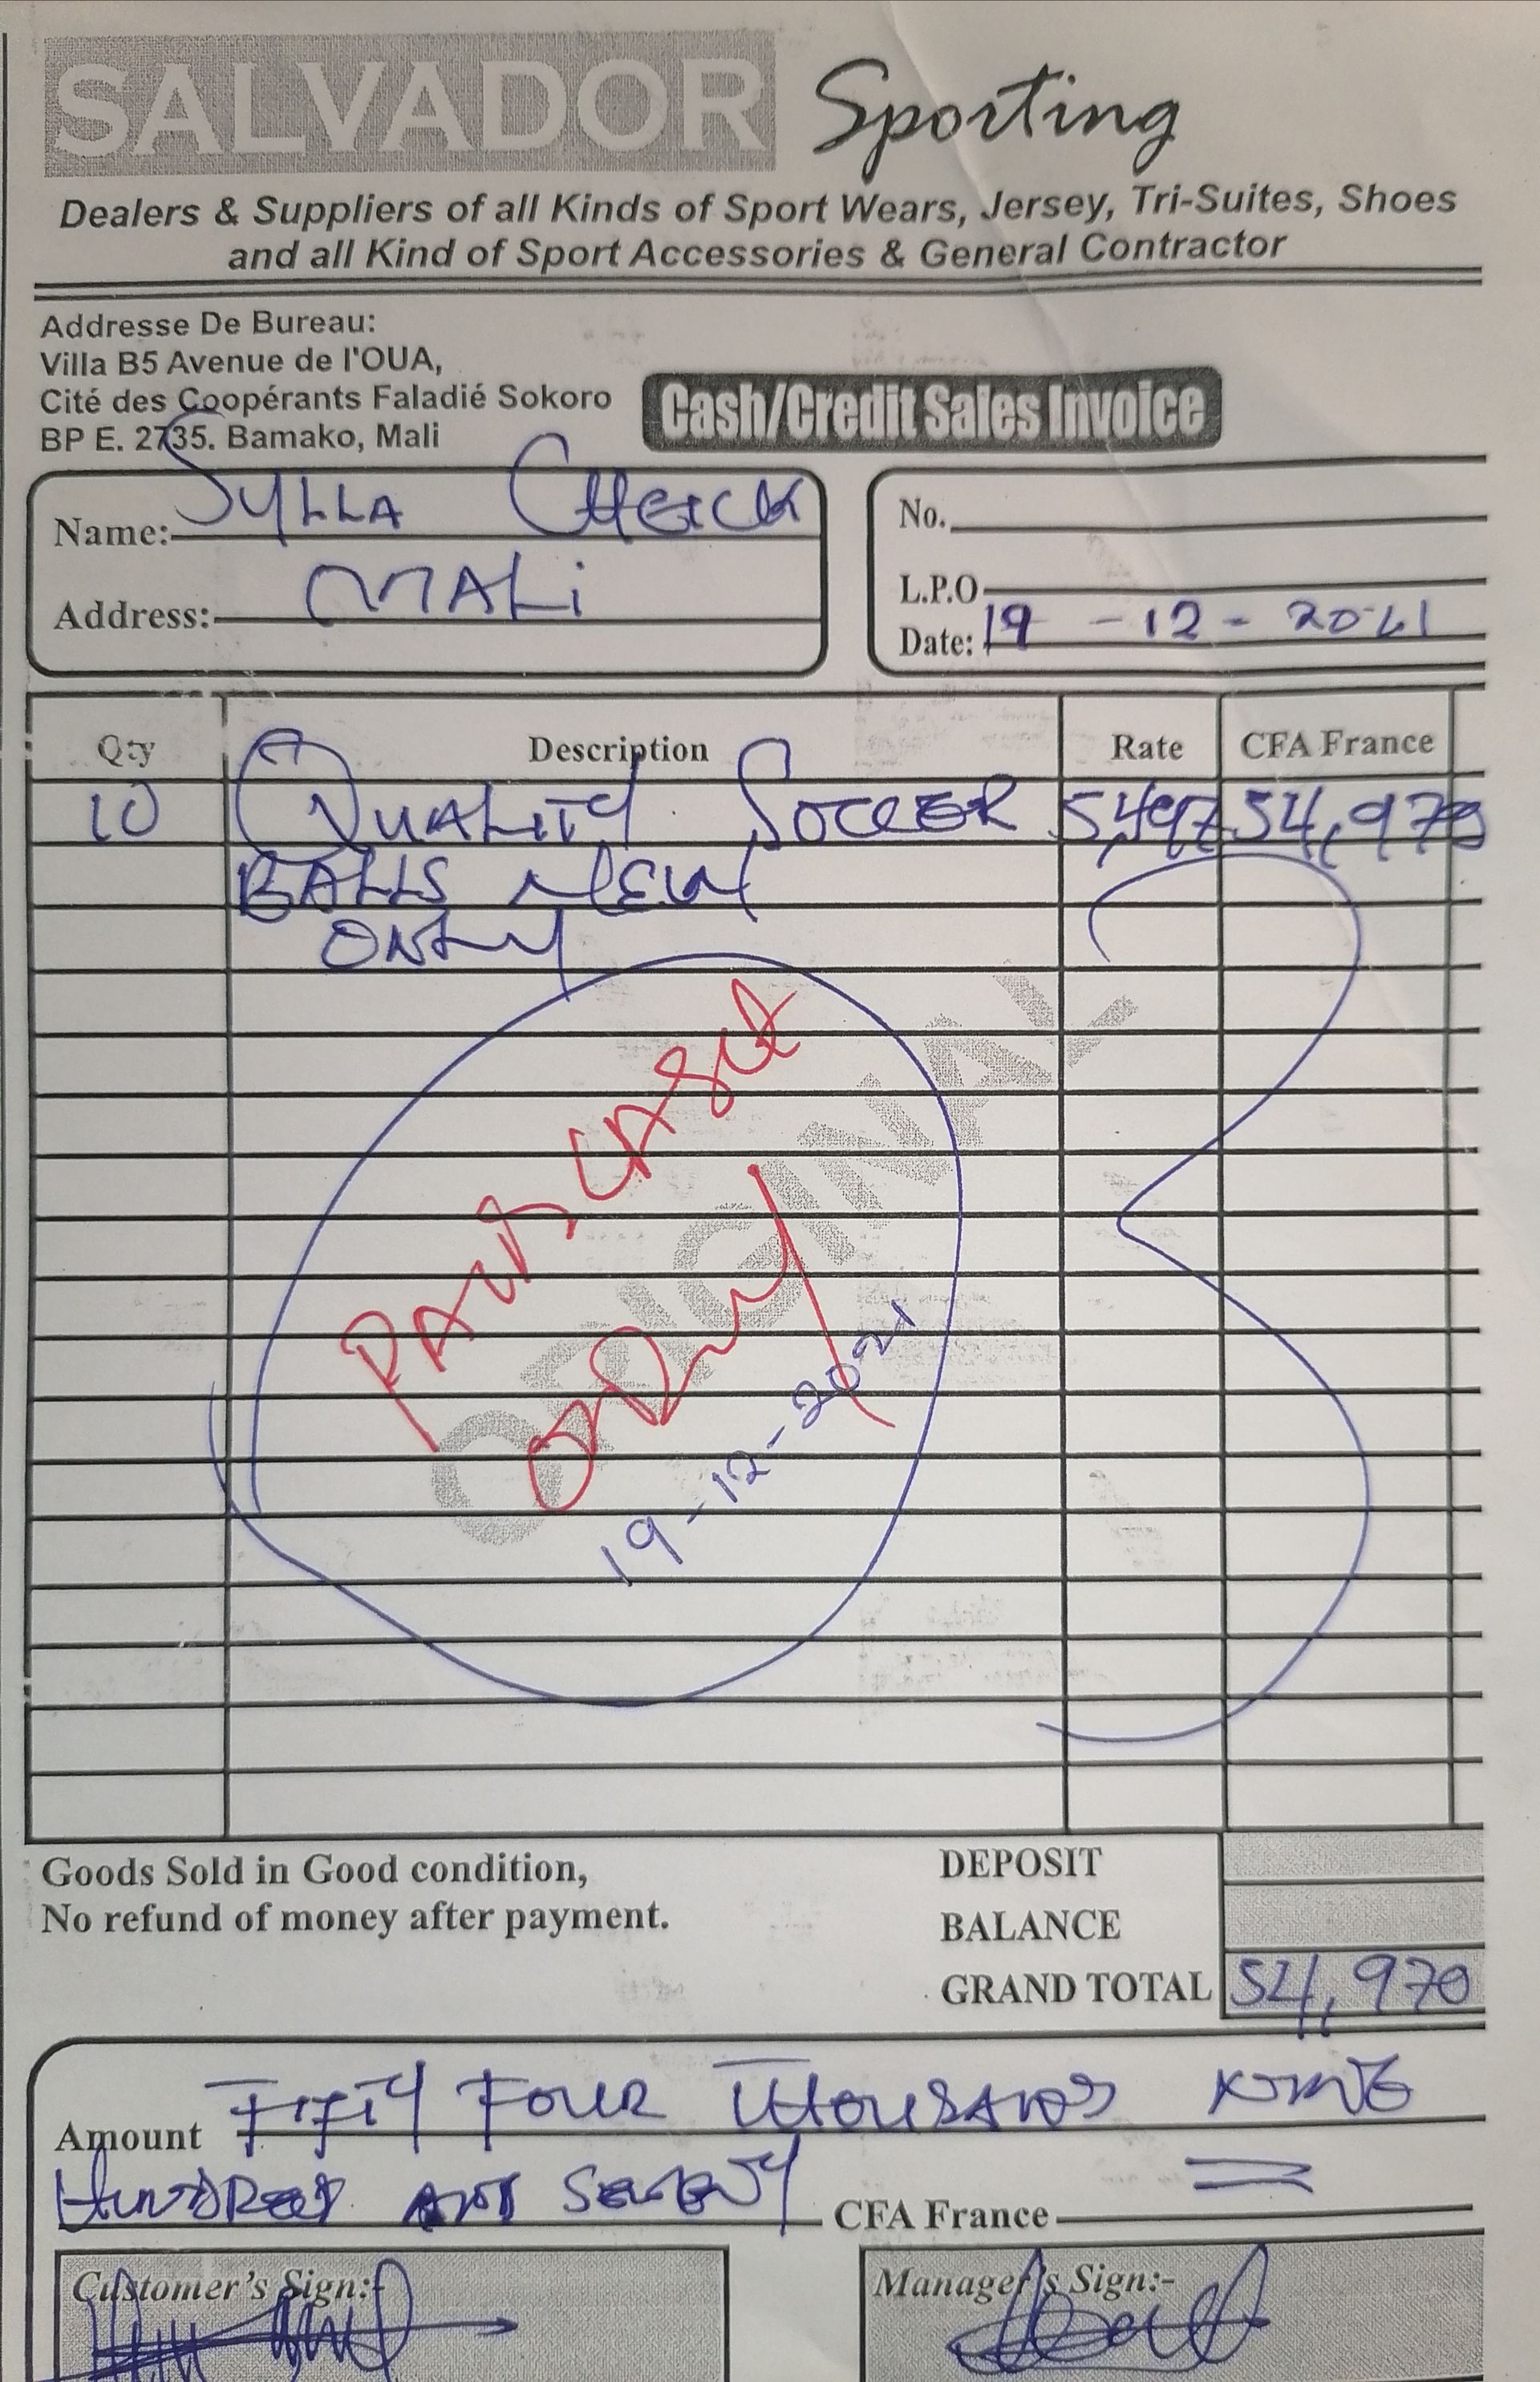 SALVADOR Sporting
Dealers & Suppliers of all Kinds of Sport Wears, Jersey, Tri-Suites, Shoes
and all Kind of Sport Accessories & General Contractor
Addresse De Bureau:
Villa B5 Avenue de l'OUA,
Cité des Coopérants Faladié Sokoro
BP E. 2735. Bamako, Mali
Cash/Credit Sales Invoice
Name: SYLLA CHEICK
Address: MALi
No.
L.P.O
Date: 19 - 12 - 2021
Qty Description Rate CFA France
10 QUALITY SOCCER 5,497 54,970
BALLS NEW
ONLY
ORIGINAL
PAID CASH
ONLY
19-12-2021
Goods Sold in Good condition,
No refund of money after payment.
DEPOSIT
BALANCE
GRAND TOTAL 54,970
Amount FIFTY FOUR THOUSAND NINE
HUNDRED AND SEVENTY CFA France
Customer's Sign:-
Manager's Sign:-